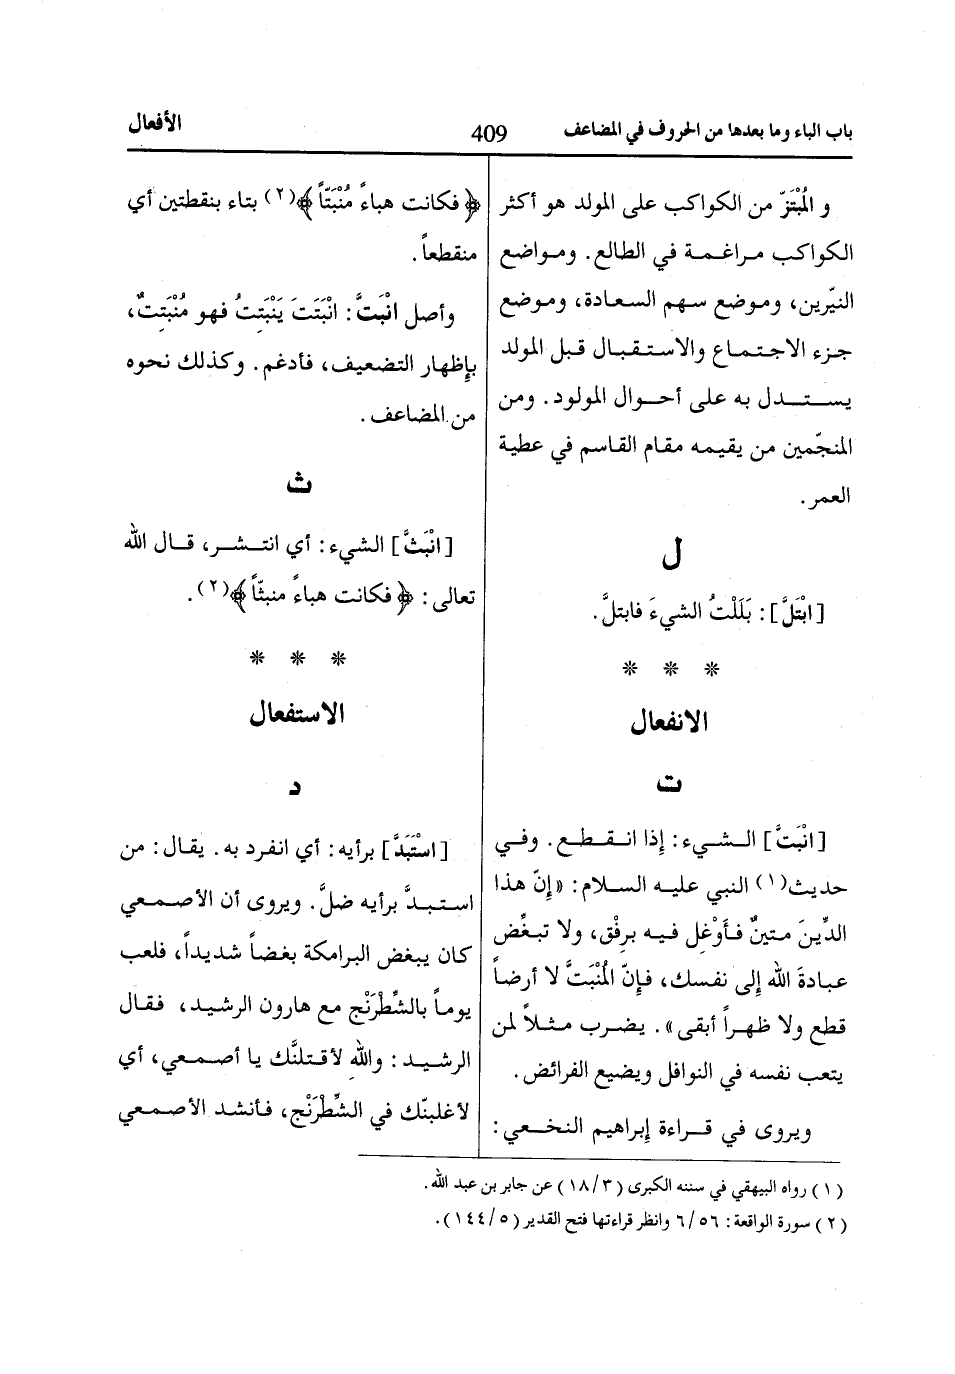 باب الباء وما بعدها من الحروف في المضاعف
409
الأفعال
و المُبْتَزّ من الكواكب على المولد هو أكثر
الكواكب مراغمة في الطالع. ومواضع
النيّرين، وموضع سهم السعادة، وموضع
جزء الاجتماع والاستقبال قبل المولد
يستدل به على أحوال المولود. ومن
المنجّمين من يقيمه مقام القاسم في عطية
العمر.
ل
[ابْتَلَّ]: بَلَلْتُ الشيءَ فابتلَّ.
* * *
الانفعال
ت
[انْبَتَّ] الشيء: إذا انقطع. وفي
حديث(١) النبي عليه السلام: «إنّ هذا
الدِّينَ متينٌ فأوْغل فيه برفْق، ولا تبغّض
عبادةَ الله إلى نفسك، فإنّ المُنْبَتَّ لا أرضاً
قطع ولا ظهراً أبقى». يضرب مثلاً لمن
يتعب نفسه في النوافل ويضيع الفرائض.
ويروى في قراءة إبراهيم النخعي:
﴿فكانت هباءً مُنْبَتّاً﴾(٢) بتاء بنقطتين أي
منقطعاً.
وأصل انْبَتَّ: انْبَتَتَ يَنْبَتِتُ فهو مُنْبَتِتٌ،
بإظهار التضعيف، فأدغم. وكذلك نحوه
من المضاعف.
ث
[انْبَثَّ] الشيء: أي انتشر، قال الله
تعالى: ﴿فكانت هباءً منبثّاً﴾(٢).
* * *
الاستفعال
د
[اسْتَبَدَّ] برأيه: أي انفرد به. يقال: من
استبدَّ برأيه ضلَّ. ويروى أن الأصمعي
كان يبغض البرامكة بغضاً شديداً، فلعب
يوماً بالشِّطْرَنْج مع هارون الرشيد، فقال
الرشيد: واللهِ لأقتلنَّك يا أصمعي، أي
لأغلبنّك في الشِّطْرَنْج، فأنشد الأصمعي
(١) رواه البيهقي في سننه الكبرى (١٨/٣) عن جابر بن عبد الله.
(٢) سورة الواقعة: ٦/٥٦ وانظر قراءتها فتح القدير (١٤٤/٥).